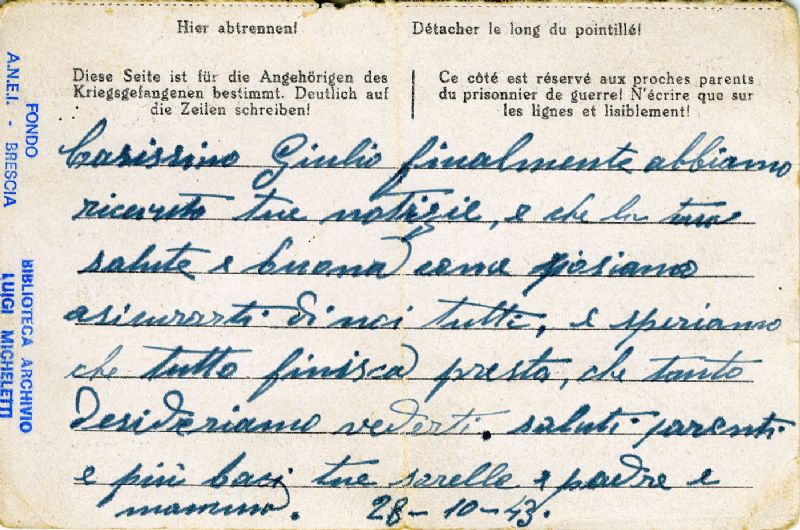 Hier abtrennen!
Détacher le long du pointillé!
Diese Seite ist für die Angehörigen des
Kriegsgefangenen bestimmt. Deutlich auf
die Zeilen schreiben!
Ce côté est réservé aux proches parents
du prisonnier de guerre! N'écrire que sur
les lignes et lisiblement!
Carissimo Giulio finalmente abbiamo
ricevuto tue notizie, e che la tua
salute e buona come posiamo
asicurarti di noi tutti, e speriamo
che tutto finisca presto, che tanto
desideriamo vederti. saluti parenti
e più baci tue sorelle e padre e
mamma. 28-10-43.
FONDO
A.N.E.I. - BRESCIA
BIBLIOTECA ARCHIVIO
LUIGI MICHELETTI